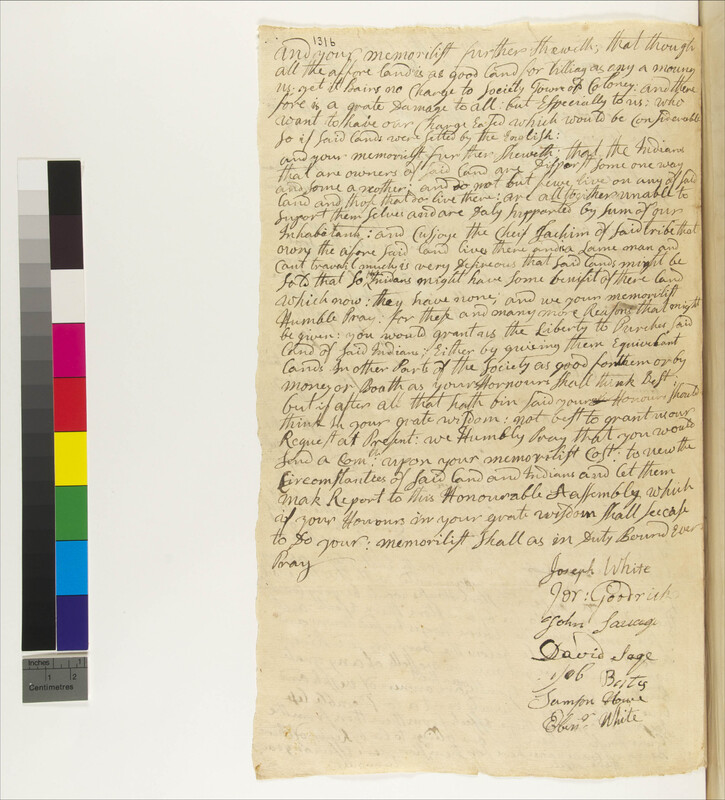 1316
and your memorilist further sheweth; that though
all the affore land is as good land for tilling as any a moung
us: yet it bairs no Charge to Society Town of Coloney: and there
fore is a grate Damage to all: but Especially to us: who
want to have our Charge Eased which would be Considerable
so if said lands were setled by the English:
and your memorilist further sheweth: that the Indians
that are owners of said land are Dispersd some one way
and some a nother: and do not but feuw live on any of said
land and thos that do live there: are all to gither unable to
suport them selves and are Daly supported by sum of our
Inhabitants: and Cusjoye the Cheif Sachim of said tribe that
owns the afore said land lives there and is a Lame man and
Cant travail much is very Desireous that said lands might be
sold that so Indians might have some benifit of there land
which now: they have none; and we your memorilist
Humble Pray: for these and many more Reasons that might
be given: you would grant us the Liberty to Purches said
land of said Indians: Either by giveing them Equivelant
lands in other Parts of the Society as good for them or by
money or Boath as your Honnours shall think Best:
but if after all that hath bin said your Honours should
think in your grate wisdom: not best to grant us our
Request at Present: we Humbly Pray that you would
send a Com:tt upon your memorilist Cost: to view the
Circomstantees of said land and Indians and let them
mak Report to this Honourable Assembly which
if your Honours in your grate wisdom shall see case
to Do your: memorilist shall as in Duty Bound Ever
Pray
Joseph White
Jer: Goodrich
John Savage
David Sage
Job Bates
Samson Howe
Ebinr White
Inches 1 2
Centimetres